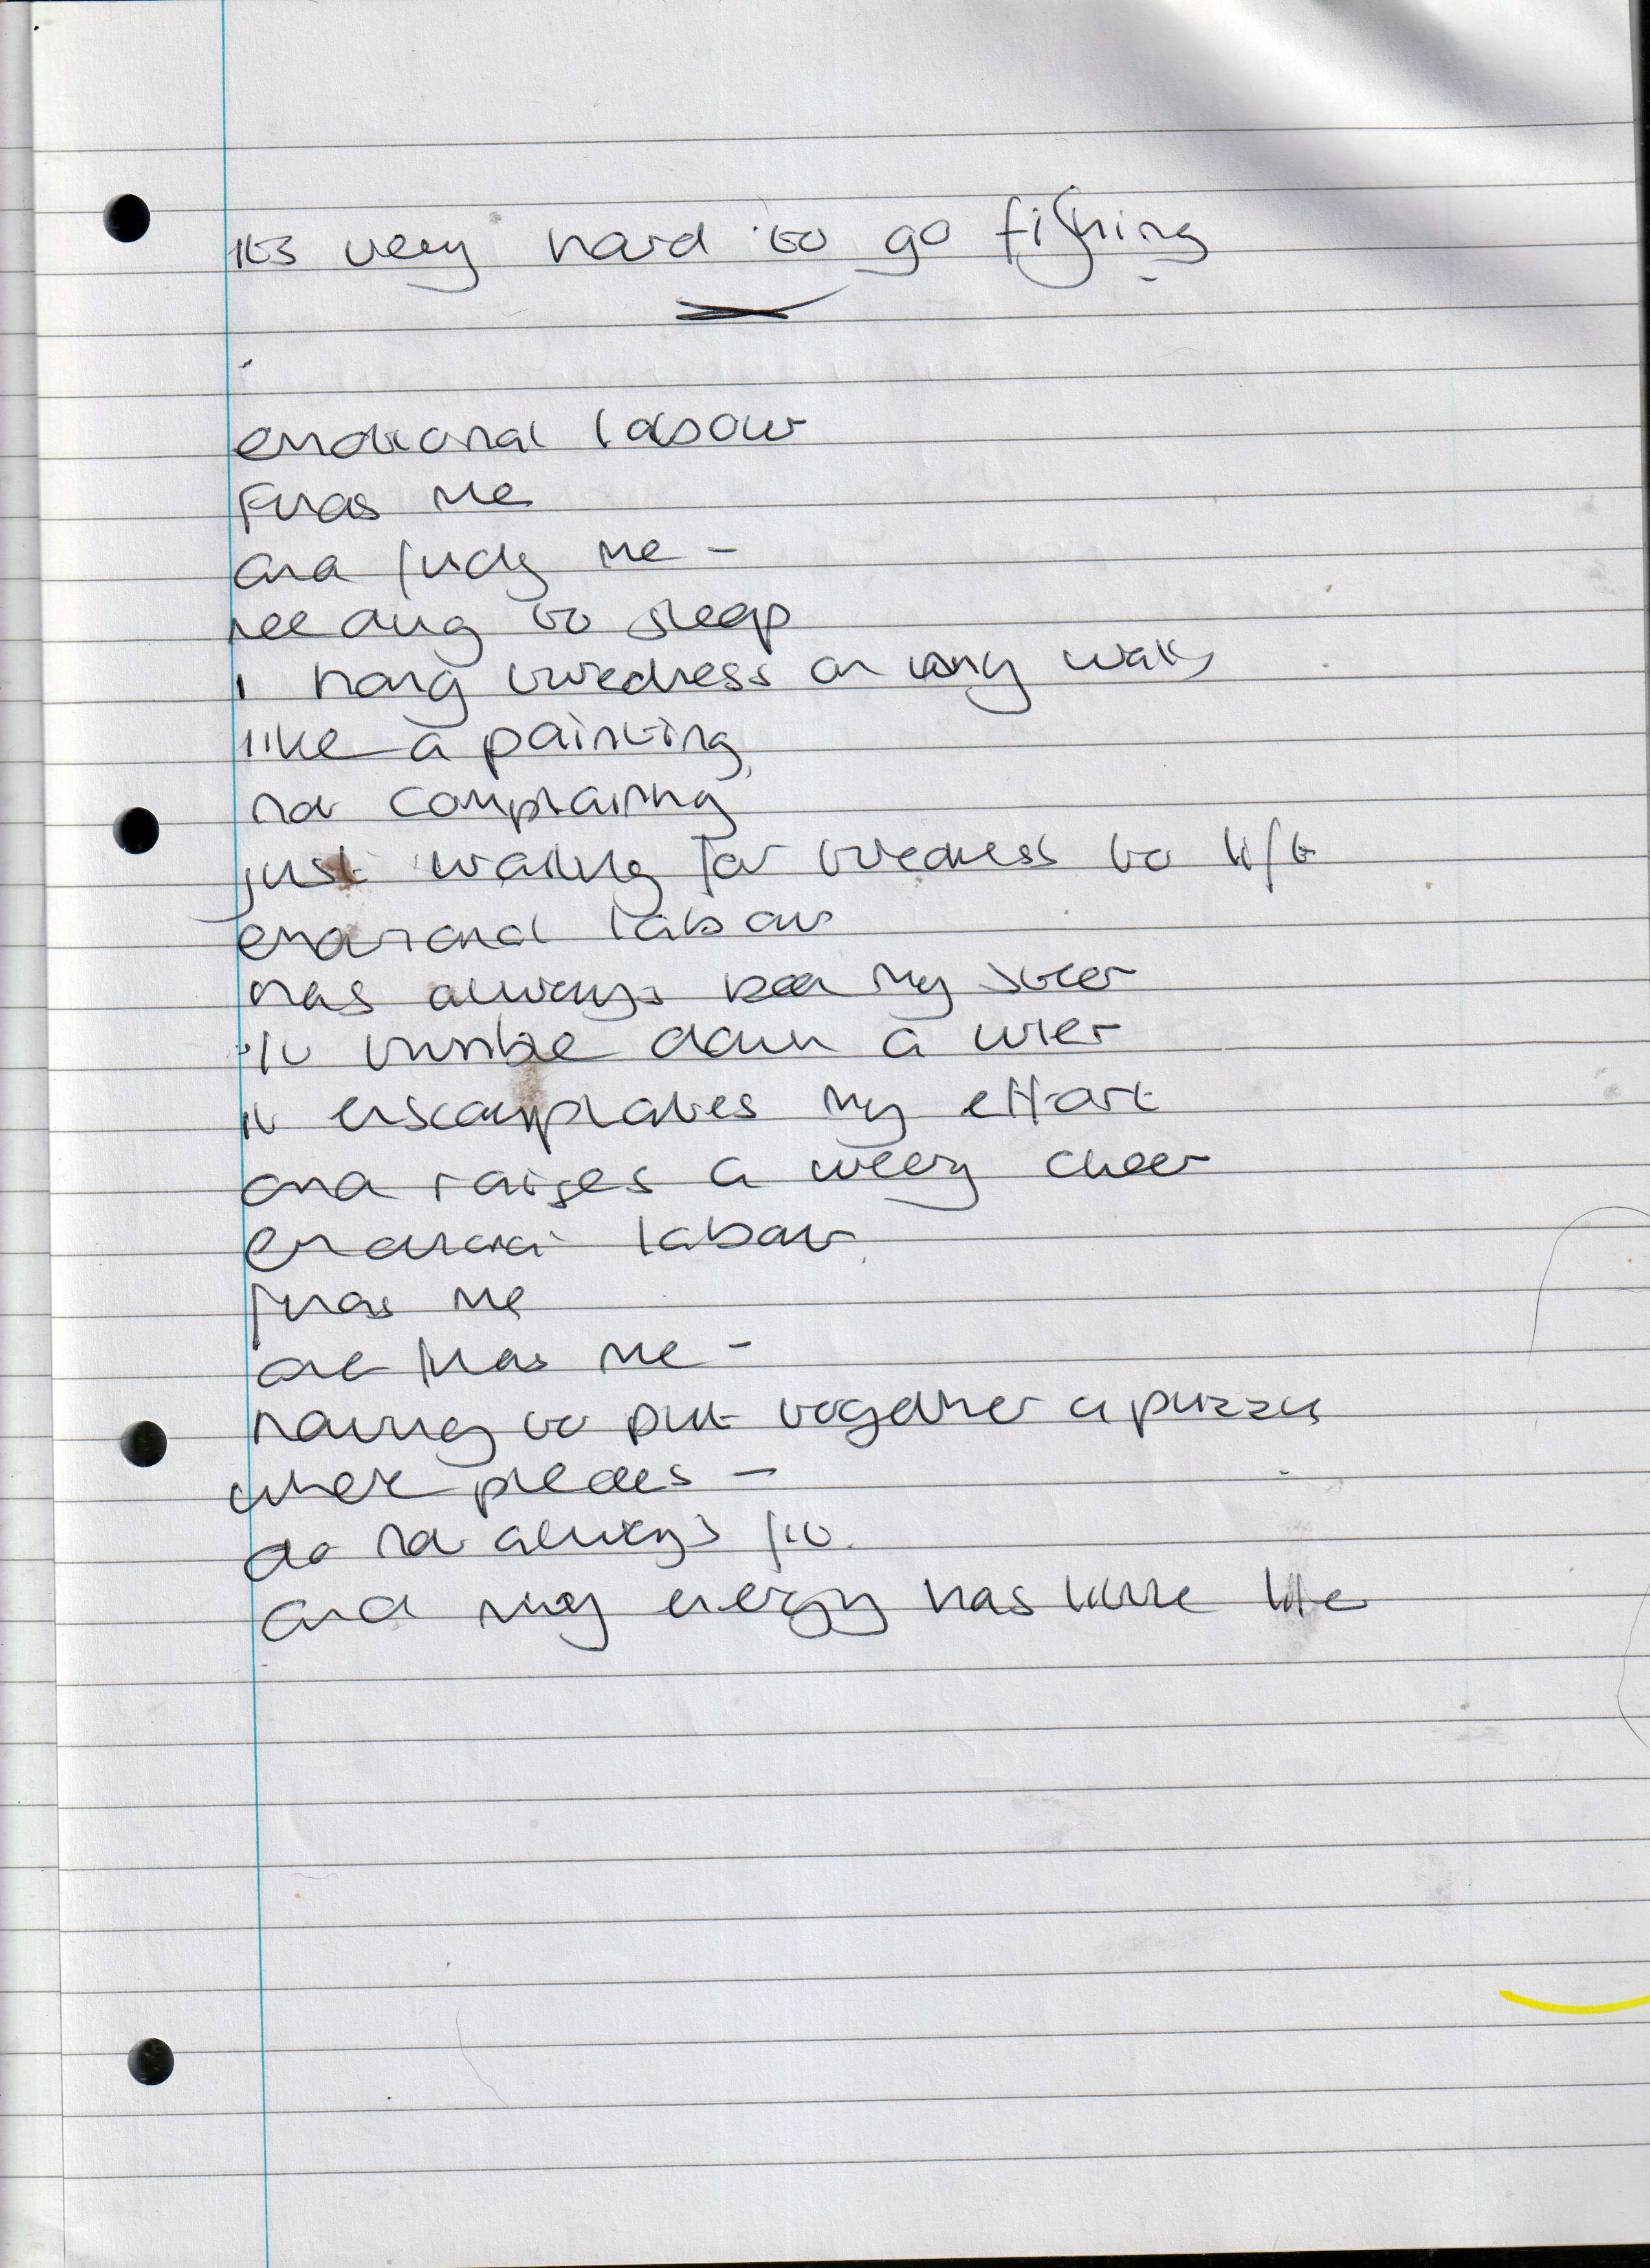 its very hard to go fishing
emotional labour
finds me
and finds me -
needing to sleep
I hang tiredness on my walls
like a painting
not complaining
just waiting for tiredness to lift
emotional labour
has always been my steer
it tumble down a wier
it my effort
and raises a weery cheer
emotional labour
finds me
and finds me -
having to put together a puzzle
where pieces -
do not always fit.
and my energy has little life